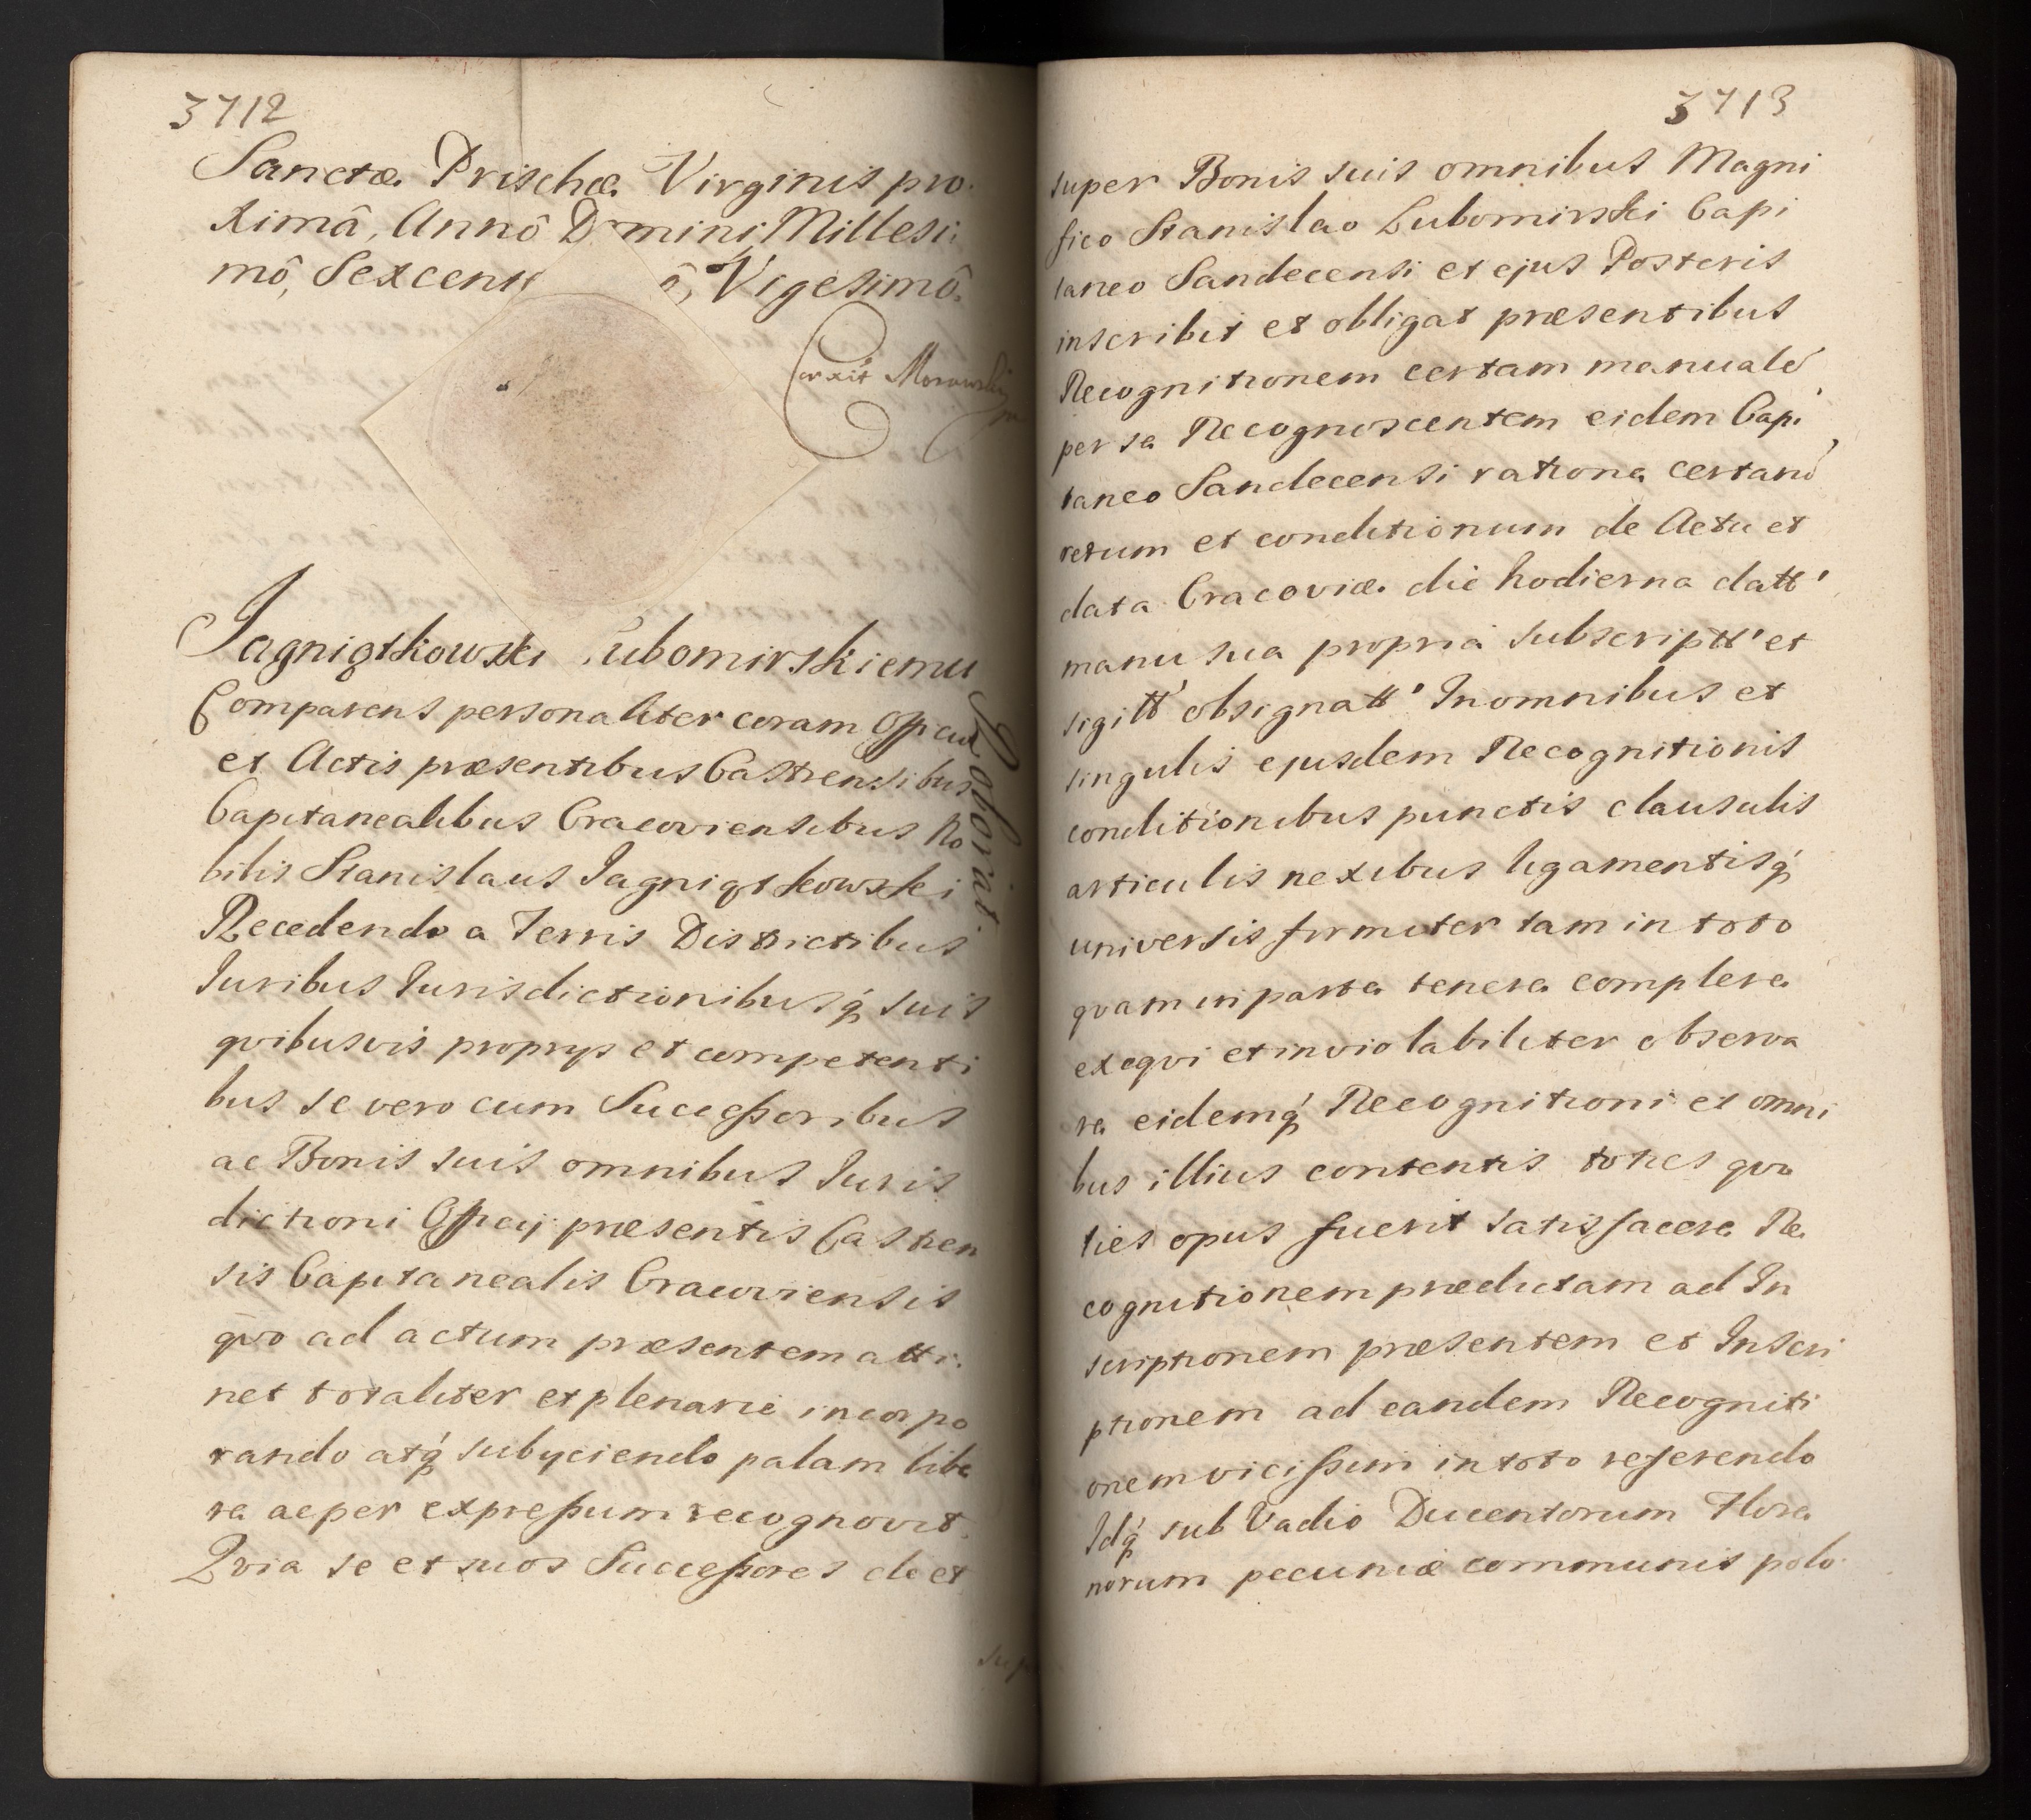 3712
Sanctæ Prischæ Virginis pro.
ximâ, Annô Domini Millesi:
mô, Sexcent ô, Vigesimô.
Corexit Morawski
Jagniątkowski Lubomirskiemu
Roborat.
Comparens personaliter coram Officio
et Actis præsentibus Castrensibus
Capitanealibus Cracoviensibus No
bilis Stanislaus Jagniątkowski
Recedendo a Terris Districtibus
Juribus Jurisdictionibusq́ suis
qvibusvis proprys et competenti
bus se vero cum Successoribus
ac Bonis suis omnibus Juris
dictioni Officij præsentis Castren
sis Capitanealis Cracoviensis
qvo ad actum præsentem atti.
net totaliter et plenarie incorpo
rando atq́ subyciendo palam libe
re ac per expressum recognovit.
Qvia se et suos Successores de et
super
3713
super Bonis suis omnibus Magni
fico Stanislao Lubomirski Capi
taneo Sandecensi et ejus Posteris
inscribit et obligat præsentibus
Recognitionem certam manualé
per se Recognoscentem eidem Capi
taneo Sandecensi ratione certaru'
rerum et conditionum de Actu et
data Cracoviæ die hodierna datt'
manu sua propria subscriptt' et
sigitt' obsignatt' In omnibus et
singulis ejusdem Recognitionis
conditionibus punctis clausulis
articulis nexibus ligamentisq́
universis firmiter tam in toto
qvam in parte tenere complere
exeqvi et inviolabiliter observa
re eidemq́ Recognitioni et omni
bus illius contentis toties qvo
ties opus fuerit satisfacere Re
cognitionem prædictam ad In
scriptionem præsentem et Inscri
ptionem ad eandem Recogniti
onem vicissim in toto referendo
Idq́ sub Vadio Ducentorum Flore
norum pecuniæ communis polo.